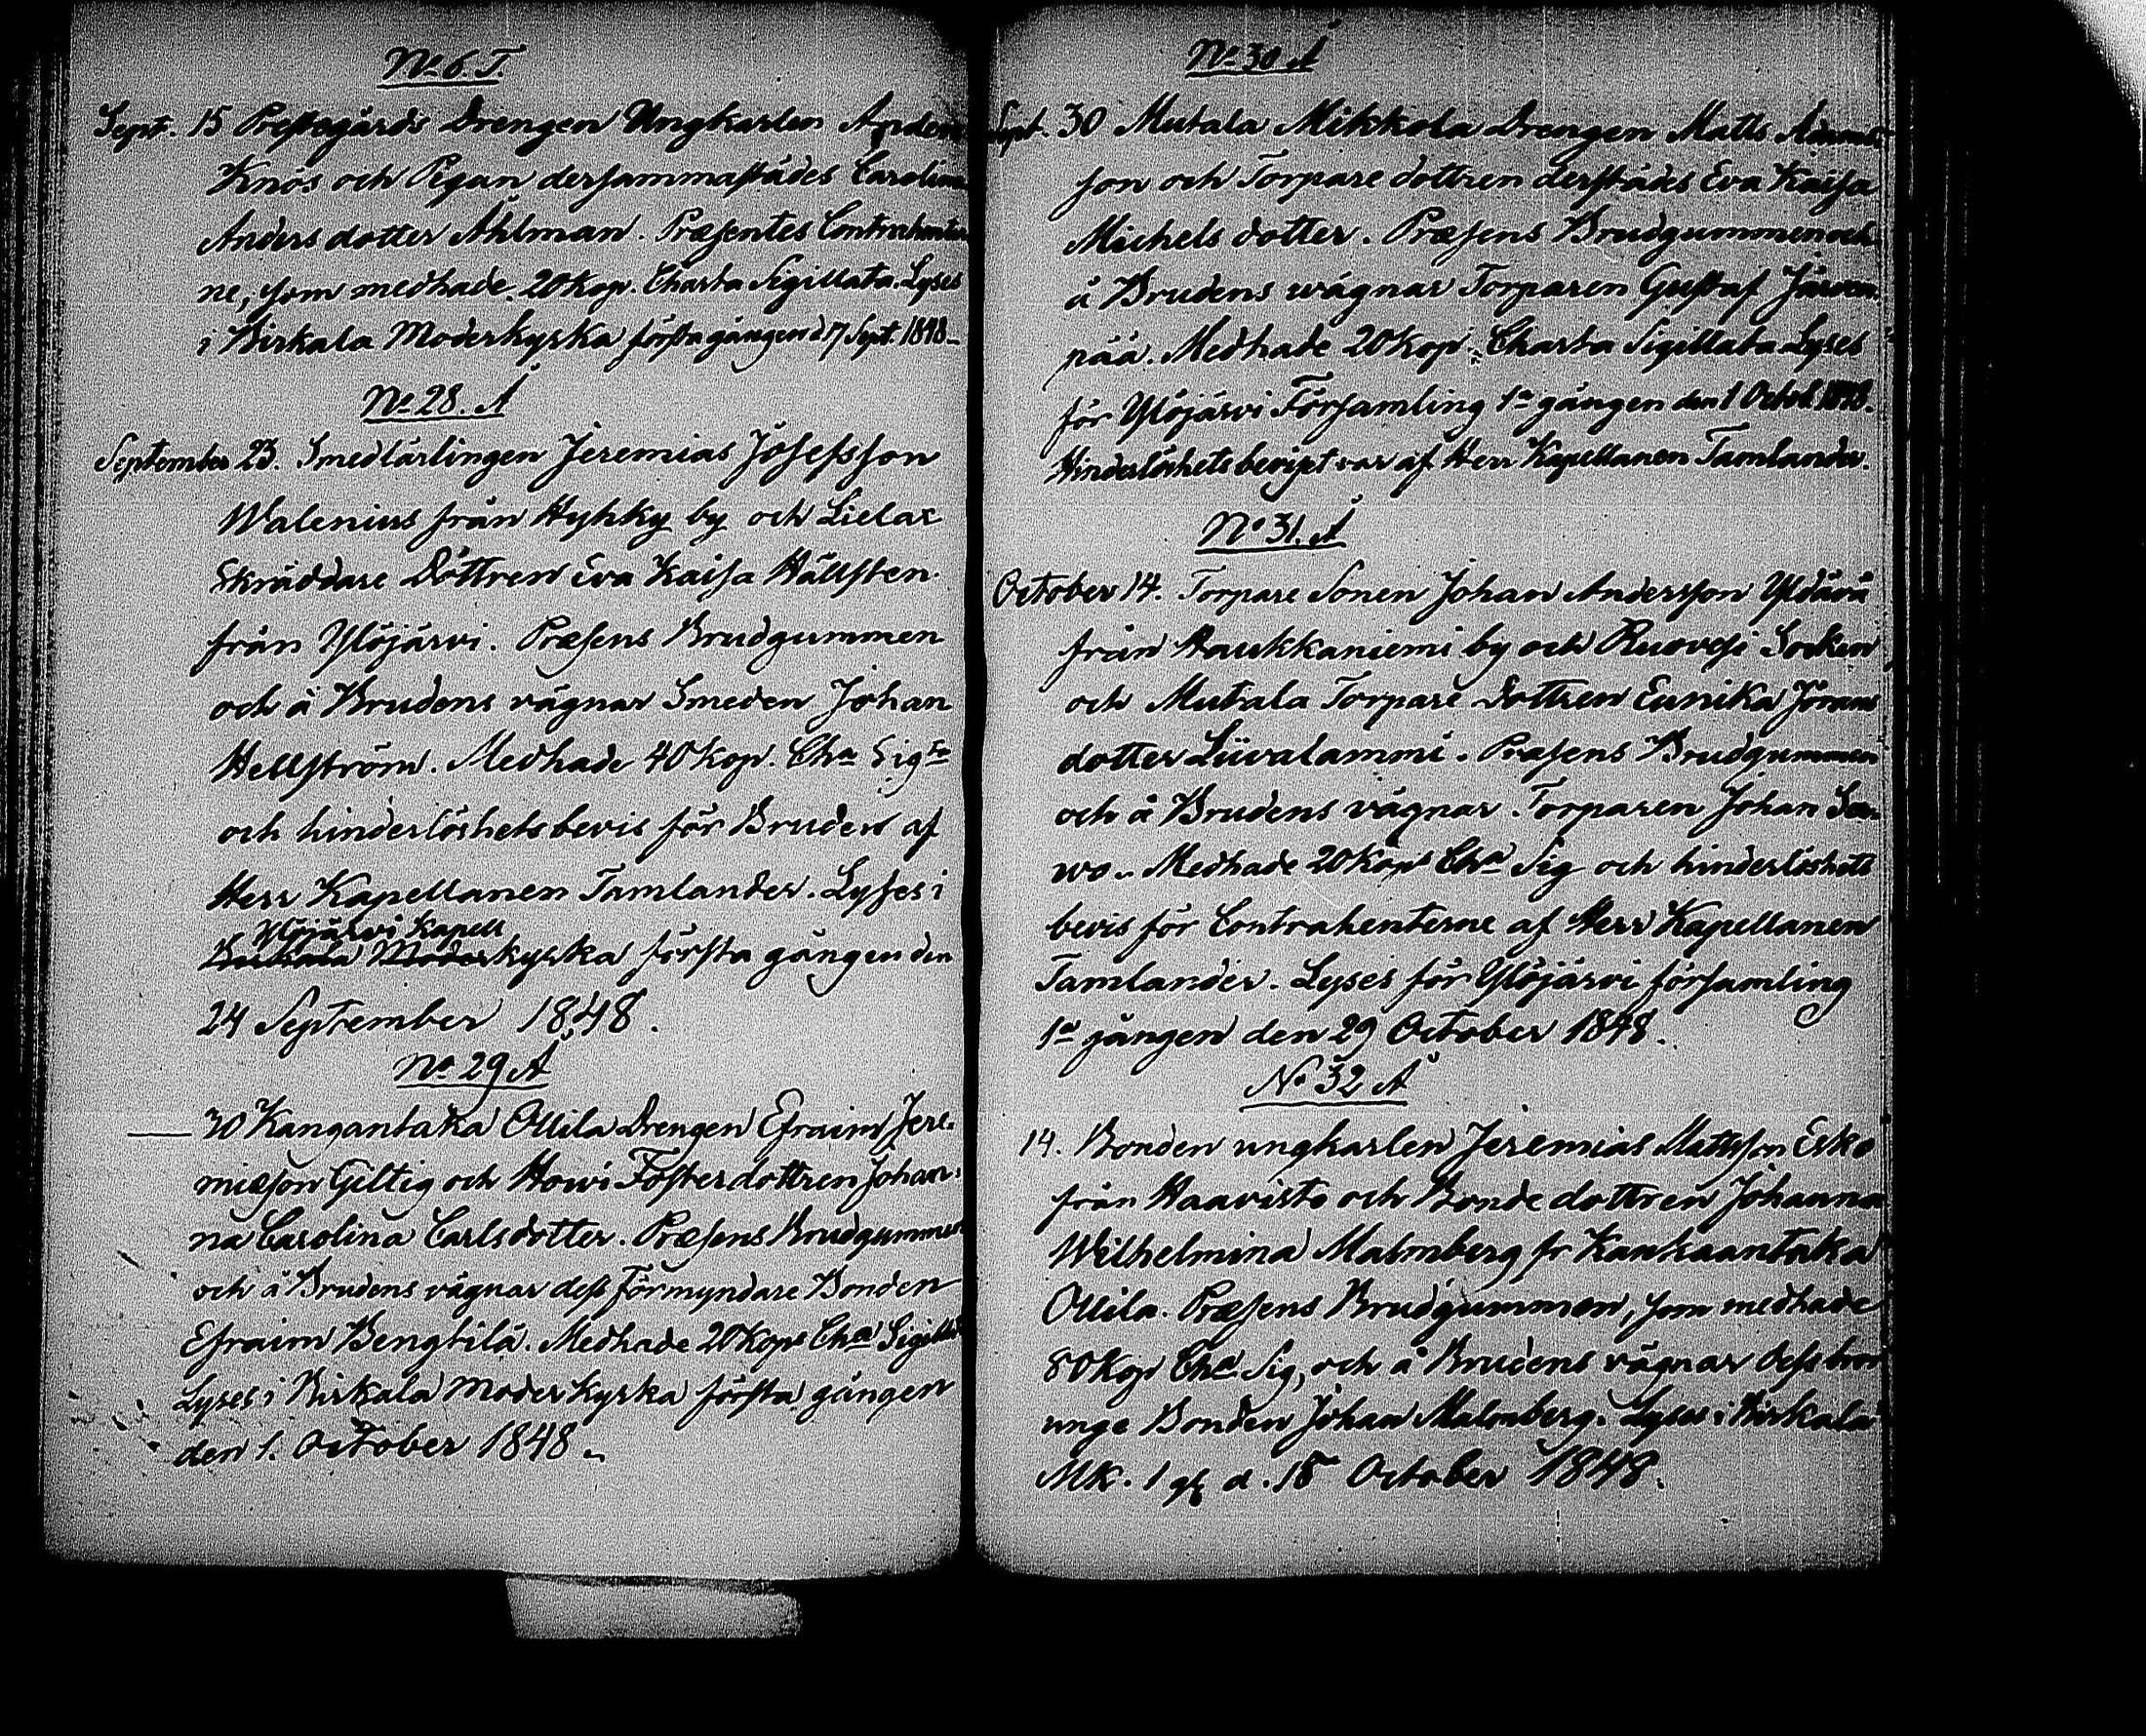 No 6. T.
Sept. 15 Prestegårds Drengen Ungkarlen Anders
Knös och Pigan dersammastädes Carolina
Anders dotter Åhlman. Præsentes Contrahenter
ne, som medhade 20 kop. Charta Sigillata. Lyses
i Birkala Moderkyrka första gången d 17 Sept. 1848.
No 28. Å
September 23. Smedlärlingen Jeremias Josefsson
Walenius från Hyhky by och Lielax
Skräddare Dottren Eva Kaisa Hällsten
från Ylöjärvi. Præsens Brudgummen
och å Brudens vägnar Smeden Johan
Hellström. Medhade 40 kop. Cha Sigta
och hinderlöshets bevis för Bruden af
Herr Kapellanen Tamlander. Lyses i
Ylöjärvi Kapell
Birkala Moderkyrka första gången den
24 September 1848.
No 29 Å
30 Kangantaka Ollila Drengen Efraim Jere-
miæson Giltig och Howi Fosterdottren Johan-
na Carolina Carlsdotter. Præsens Brudgummen
och å Brudens vägnar dess Förmyndare Bonden
Efraim Bengtilä. Medhade 20 Kops Cha Sigilla
Lyses i Birkala Moderkyrka första gången
den 1. October 1848.
No 30 Å
Sept. 30 Mutala Mikkola Drengen Matts Adams-
son och Torpare dottren derstädes Eva Kaisa
Michels dotter. Præsens Brudgummen och
å Brudens wägnar Torparen Gustaf Järven-
pää. Medhade 20 kop. Charta Sigillata Lyses
för Ylöjärvi Församling 1a gången den 1 Octob. 1848.
Hinderlöshetsbeviset var af Herr Kapellanen Tamlander.
No 31. Å
October 14. Torpare Sonen Johan Andersson
från Haukkaniemi by och Ruovesi Socken
och Mutala Torpare Dottren Eunika Jörans
dotter Liivalammi. Præsens Brudgummen
och å Brudens vägnar Torparen Johan Sa-
wo. Medhade 20 Kops Cha Sig och hinderlöshets
bevis för Contrahenterne af Herr Kapellanen
Tamlander. Lyses för Ylöjärvi församling
1a gången den 29 October 1848.
No 32 Å
14. Bonden ungkarlen Jeremias Mattsson Esko
från Haavisto och Bonde dottren Johanna
Wilhelmina Malmberg fr Kankaantaka
Ollila. Præsens Brudgummen, som medhade
80 Kop Cha Sig, och å Brudens vägnar dess bror
unge Bonden Johan Malmberg. Lyses i Birkala
MK. 1 gg d. 15 October 1848.